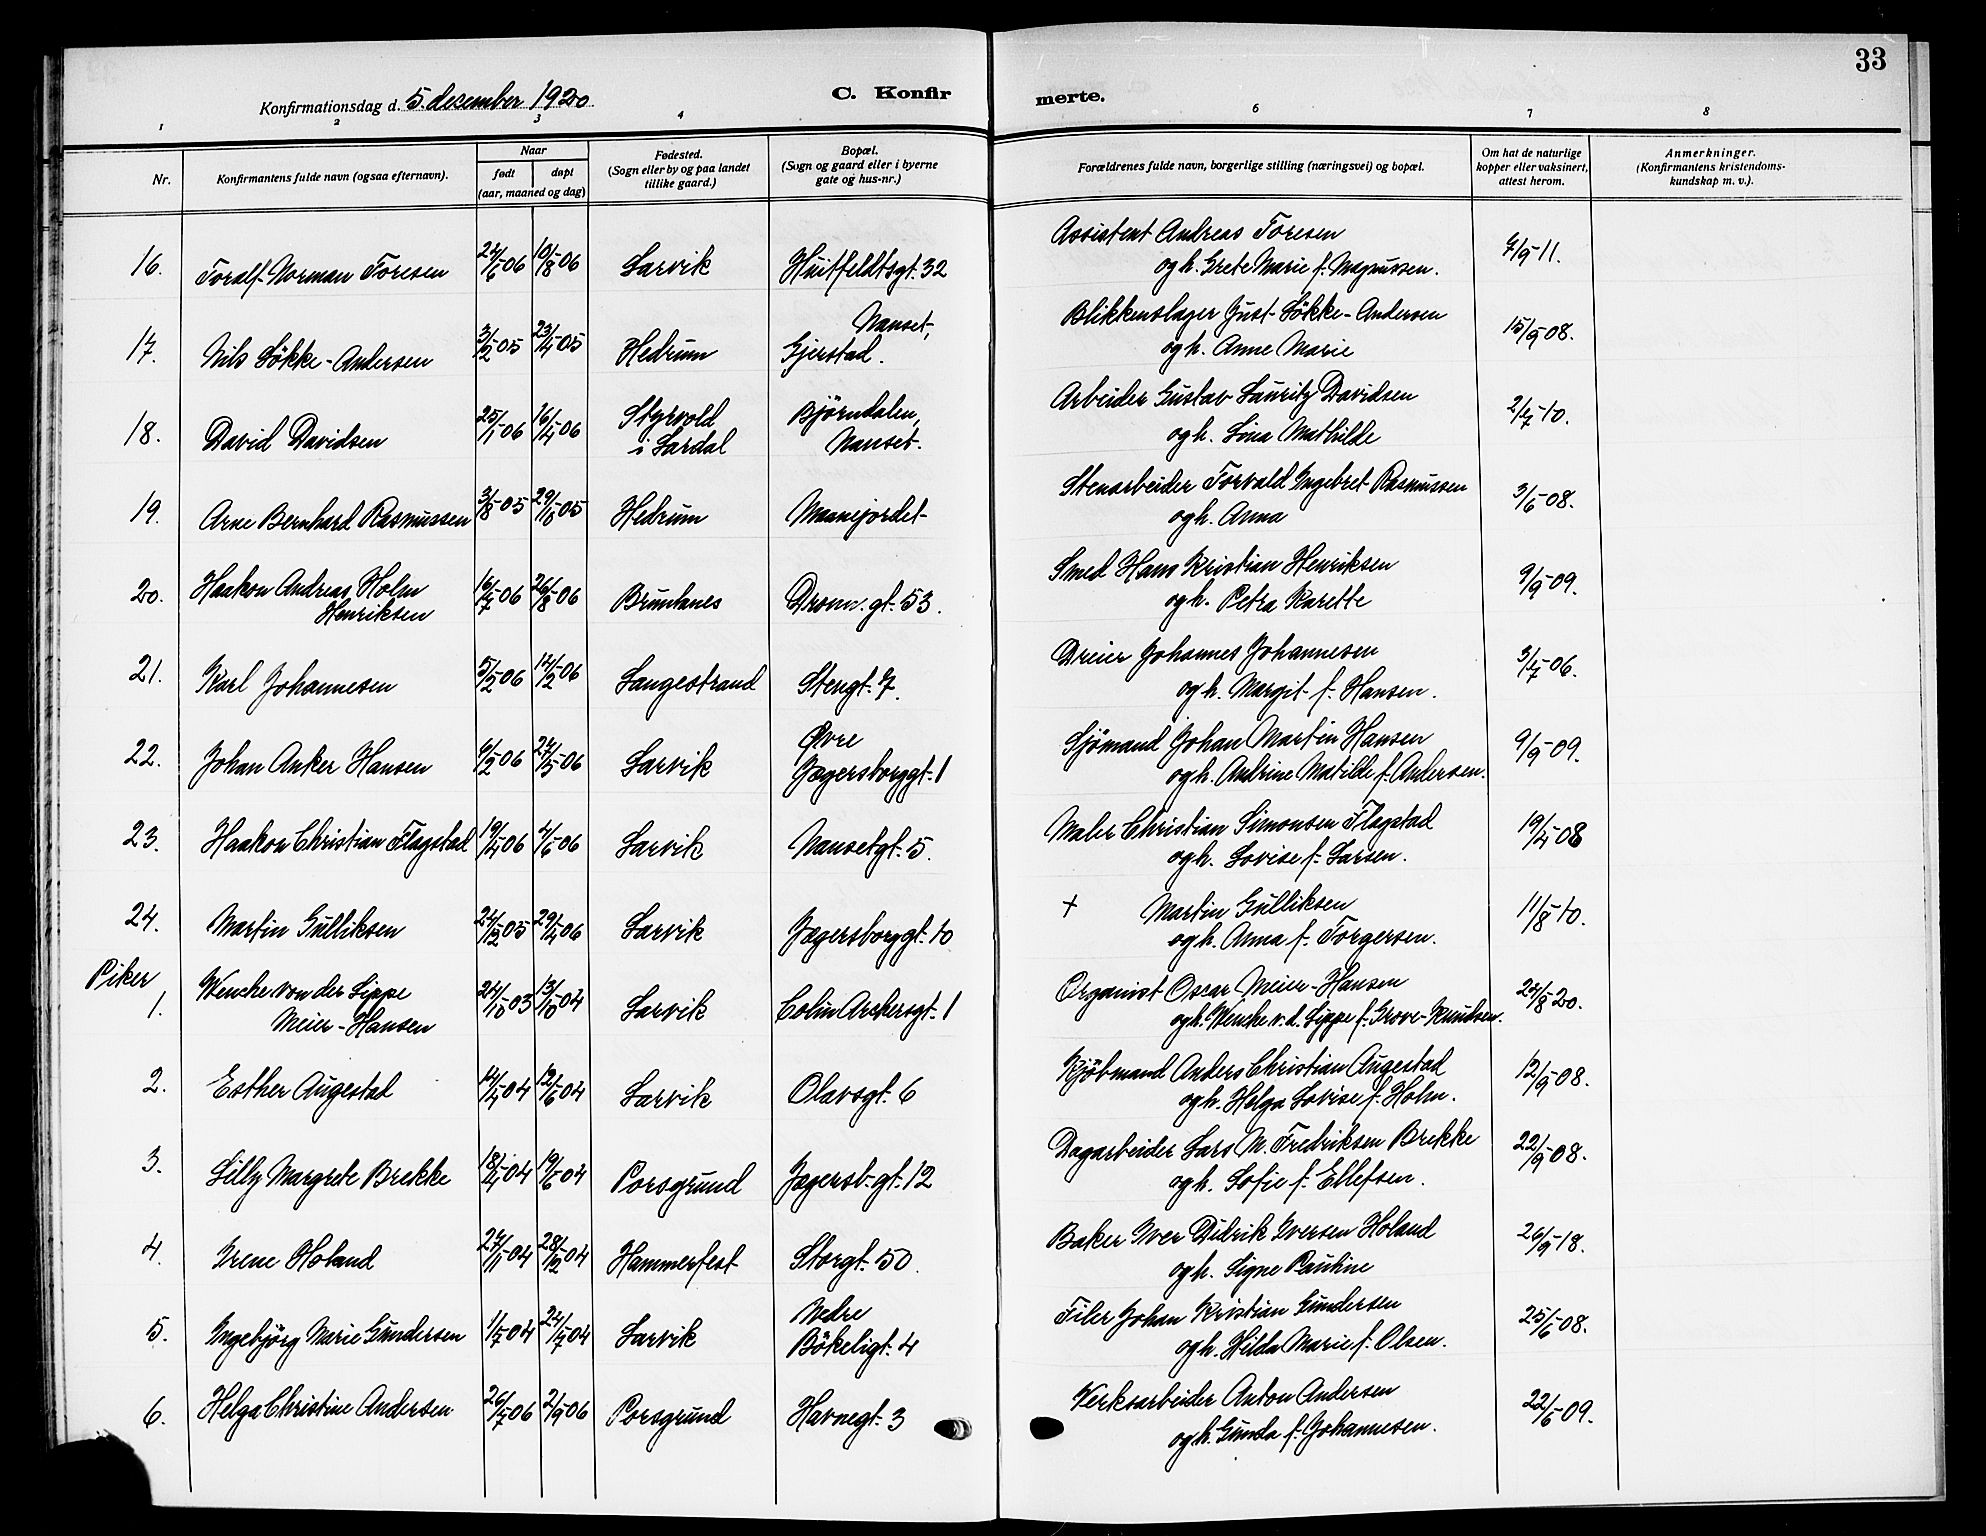 33
Konfirmationsdag d. 5. december 1920.
C. Konfirmerte.
1 2 3 4 6 7 8
Nr.
Konfirmantens fulde navn (ogsaa efternavn).
Naar
født døpt
(aar, maaned og dag)
Fødested.
(Sogn eller by og paa landet
tillike gaard.)
Bopæl.
(Sogn og gaard eller i byerne
gate og hus-nr.)
Forældrenes fulde navn, borgerlige stilling (næringsvei) og bopæl.
Om hat de naturlige
kopper eller vaksinert,
attest herom.
Anmerkninger.
(Konfirmantens kristendoms-
kundskap m. v.).
16. Toralf Norman Toresen 24/6-06 10/8-06 Larvik Huitfeldtsgt. 32
Assistent Andreas Toresen
og h. Grete Marie f. Magnussen. 7/9-11.
17. Nils Løkke-Andersen 3/2-05 23/4-05 Hedrum Nanset,
Gjerstad.
Blikkenslager Just Løkke-Andersen
og h. Anne Marie 15/9-08.
18. David Davidsen 25/1-06 16/4-06 Styrvold
i Lardal
Bjørndalen,
Nanset.
Arbeider Gustav Lauritz Davidsen
og h. Lina Mathilde 2/7-10.
19. Arne Bernhard Rasmussen 3/8-05 29/10-05 Hedrum Maanejordet
Stenarbeider Torvald Ingebret Rasmussen
og h. Anna 3/6-08.
20. Haakon Andreas Holm
Henriksen 16/7-06 26/8-06 Brunlanes Dronn. gt. 53.
Smed Hans Kristian Henriksen
og h. Petra Karette 9/9-09.
21. Karl Johannesen 5/2-06 14/2-06 Langestrand Stengt. 7.
Dreier Johannes Johannesen
og h. Margit f. Hansen. 3/7-06.
22. Johan Anker Hansen 6/2-06 27/5-06 Larvik Øvre
Jægersborggt. 1
Sjømand Johan Martin Hansen
og h. Andrine Matilde f. Andersen. 9/9-09.
23. Haakon Christian Flagstad 19/4-06 4/6-06 Larvik Nansetgt. 5.
Maler Christian Simonsen Flagstad
og h. Lovise f. Larsen. 19/4-08
24. Martin Gulliksen 24/12-05 29/4-06 Larvik Jægersborggt. 10
+ Martin Gulliksen
og h. Anna f. Torgersen. 11/8-10.
Piker
1. Wenche von der Lippe
Meier-Hansen 24/10-03 13/10-04 Larvik Colin Archersgt. 1
Organist Oscar Meier-Hansen
og h. Wenche v. d. Lippe f. Grove-Knudsen. 24/8-20.
2. Esther Augestad 14/4-04 12/6-04 Larvik Olavsgt. 6
Kjøbmand Anders Christian Augestad
og h. Helga Lovise f. Holm. 12/9-08.
3. Lilly Margrete Brekke 18/4-04 19/6-04 Porsgrund Jægersb. gt. 12
Dagarbeider Lars M. Fredriksen Brekke
og h. Sofie f. Ellefsen. 22/9-08.
4. Irene Holand 27/11-04 28/12-04 Hammerfest Storgt. 50
Baker Iver Didrik Iversen Holand
og h. Signe Pauline 26/9-18.
5. Ingebjørg Marie Gundersen 1/5-04 24/7-04 Larvik Nedre
Bøkeligt. 4
Filer Johan Kristian Gundersen
og h. Hilda Marie f. Olsen. 25/6-08.
6. Helga Christine Andersen 26/7-06 2/9-06 Porsgrund Havnegt. 3
Verksarbeider Anton Andersen
og h. Gunda f. Johannesen. 22/6-09.